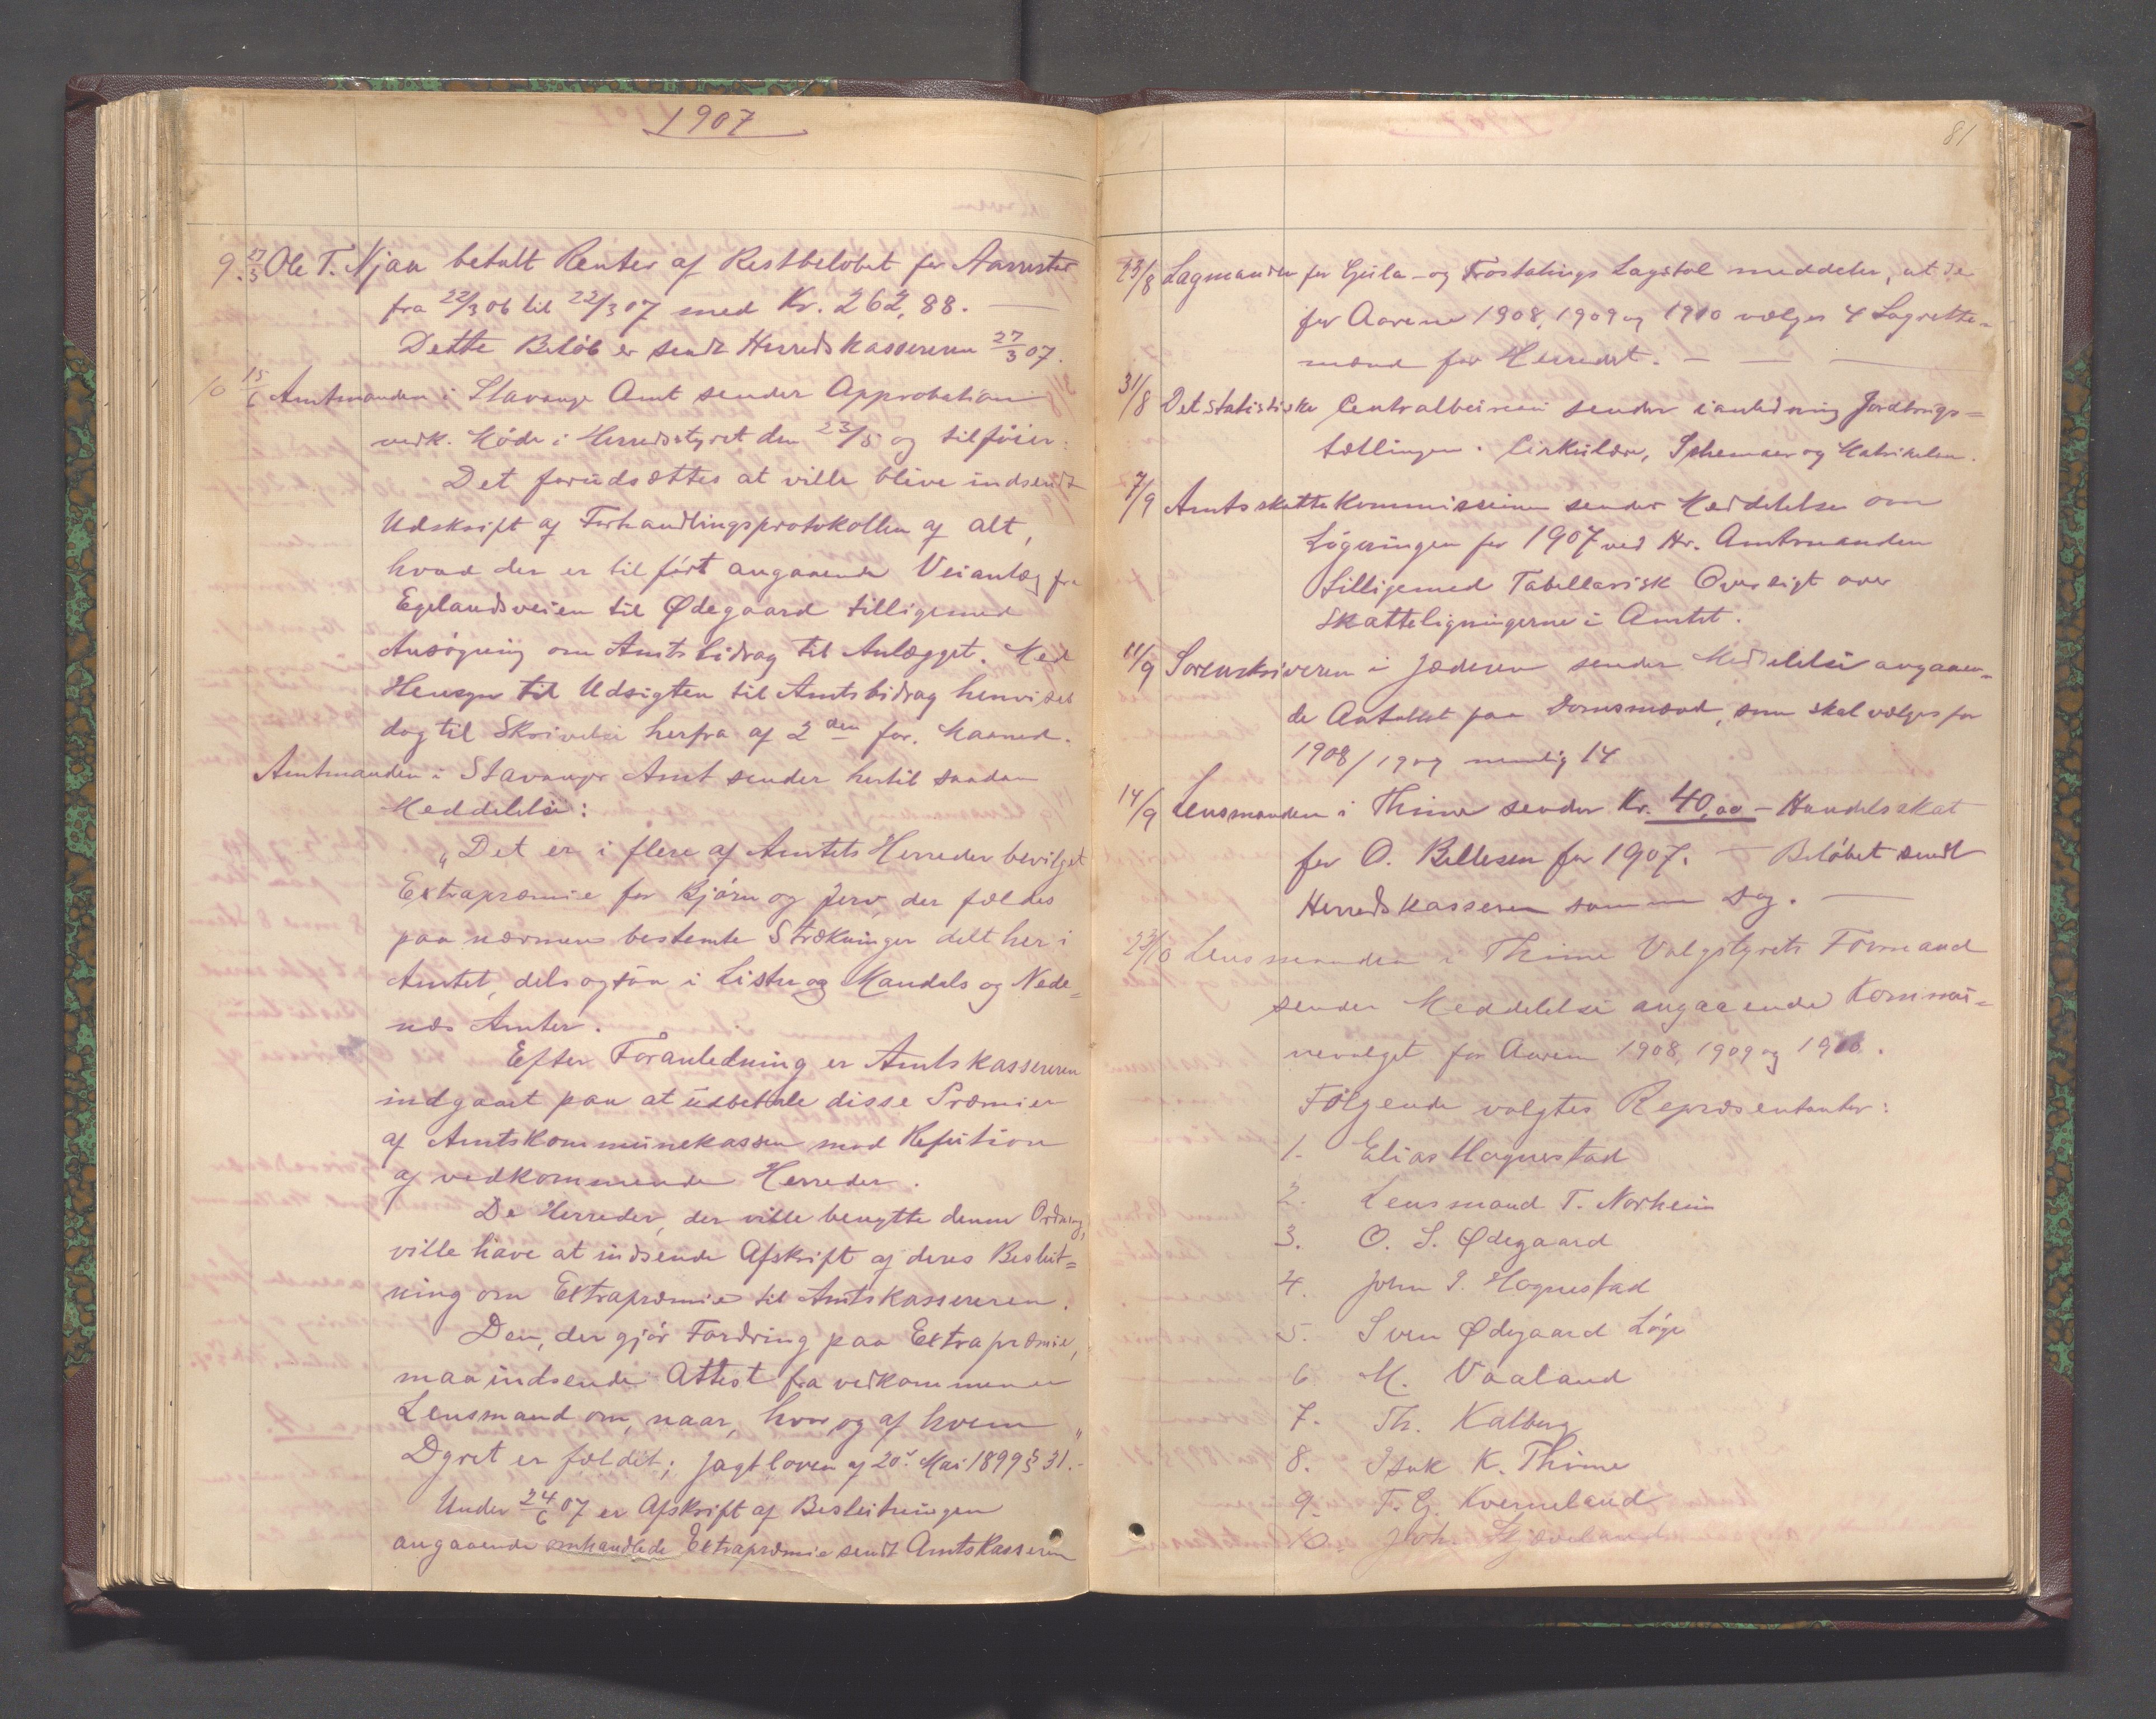 1907
9. 27/3 Ole T. Njaa betalt Renter af Restbeløbet for Aarrestad
fra 22/3 06 til 22/3 07 med Kr. 262,88. —
Dette Beløb er sendt Herredskassereren 27/3 07.
10 15/6 Amtmanden i Stavanger Amt sender Approbation
vedk. Møde i Herredsstyret den 23/5 og tilføier:
Det forudsættes at ville blive indsendt
Udskrift af Forhandlingsprotokollen af alt,
hvad der er tilført angaaende Veianlæg fra
Egelandsveien til Ødegaard tilligemed
Ansøgning om Amtsbidrag til Anlægget. Med
Hensyn til Udsigten til Amtsbidrag henvises
dog til Skrivelse herfra af 2den for. Maaned.
Amtmanden i Stavanger Amt sender hertil saadan
Meddelelse:
„Det er i flere af Amtets Herreder bevilget
Extrapræmie for Bjørn og Jerv, der fældes
paa nærmere bestemte Strækninger delt her i
Amtet, dels ogsaa i Lister og Mandals og Nede=
næs Amter.
Efter Foranledning er Amtskassereren
indgaaet paa at udbetale disse Præmier
af Amtskommunekassen mod Refution
af vedkommende Herreder.
De Herreder, der ville benytte denne Ordning,
ville have at indsende Afskrift af deres Beslut=
ning om Extrapræmie til Amtskassereren.
Den, der gjør Fordring paa Extrapræmie,
maa indsende Attest fra vedkommende
Lensmand om, naar, hvor og af hvem
Dyret er fældet; jagtloven af 20de Mai 1899 § 31.“
Under 24/6 07 er Afskrift af Beslutningen
angaaende omhandlede Extrapræmie sendt Amtskasseren
81
23/8 Lagmanden for Gula- og Frostatings Lagstol meddeler, at de
for Aarene 1908, 1909 og 1910 vælges 4 Lagrette=
mænd for Herredet. — — —
31/8 Det statistiske Centralbureau sender i anledning Jordbrugs=
tællingen: Cirkulære, Schemaer og Matrikelen.
7/9 Amtsskattekommissionen sender Meddelelse om
Ligningen for 1907 ved Hr. Amtmanden
tilligemed Tabellarisk Oversigt over
Skatteligningerne i Amtet.
11/9 Sorenskriveren i Jæderen sender Meddelelse angaaen=
de Antallet paa Domsmænd, som skal vælges for
1908/1909 nemlig 14
14/9 Lensmanden i Thime sender Kr. 40,00 — Handelsskat
for O. Bellesen for 1907. — Beløbet sendt
Herredskasseren samme Dag. —
23/10 Lensmanden i Thime Valgstyrets Formand
sender Meddelelse angaaende Kommu=
nevalget for Aarene 1908, 1909 og 1910.
Følgende valgtes Repræsentanter:
1. Elias Hognestad
2. Lensmand T. Norheim
3. O. S. Ødegaard
4. John S. Hognestad
5. Sven Ødegaard Lye
6 M. Vaaland
7. Th. Kalberg
8. Isak K. Thime
9. T. G. Kverneland
10. Joh. Skjæveland